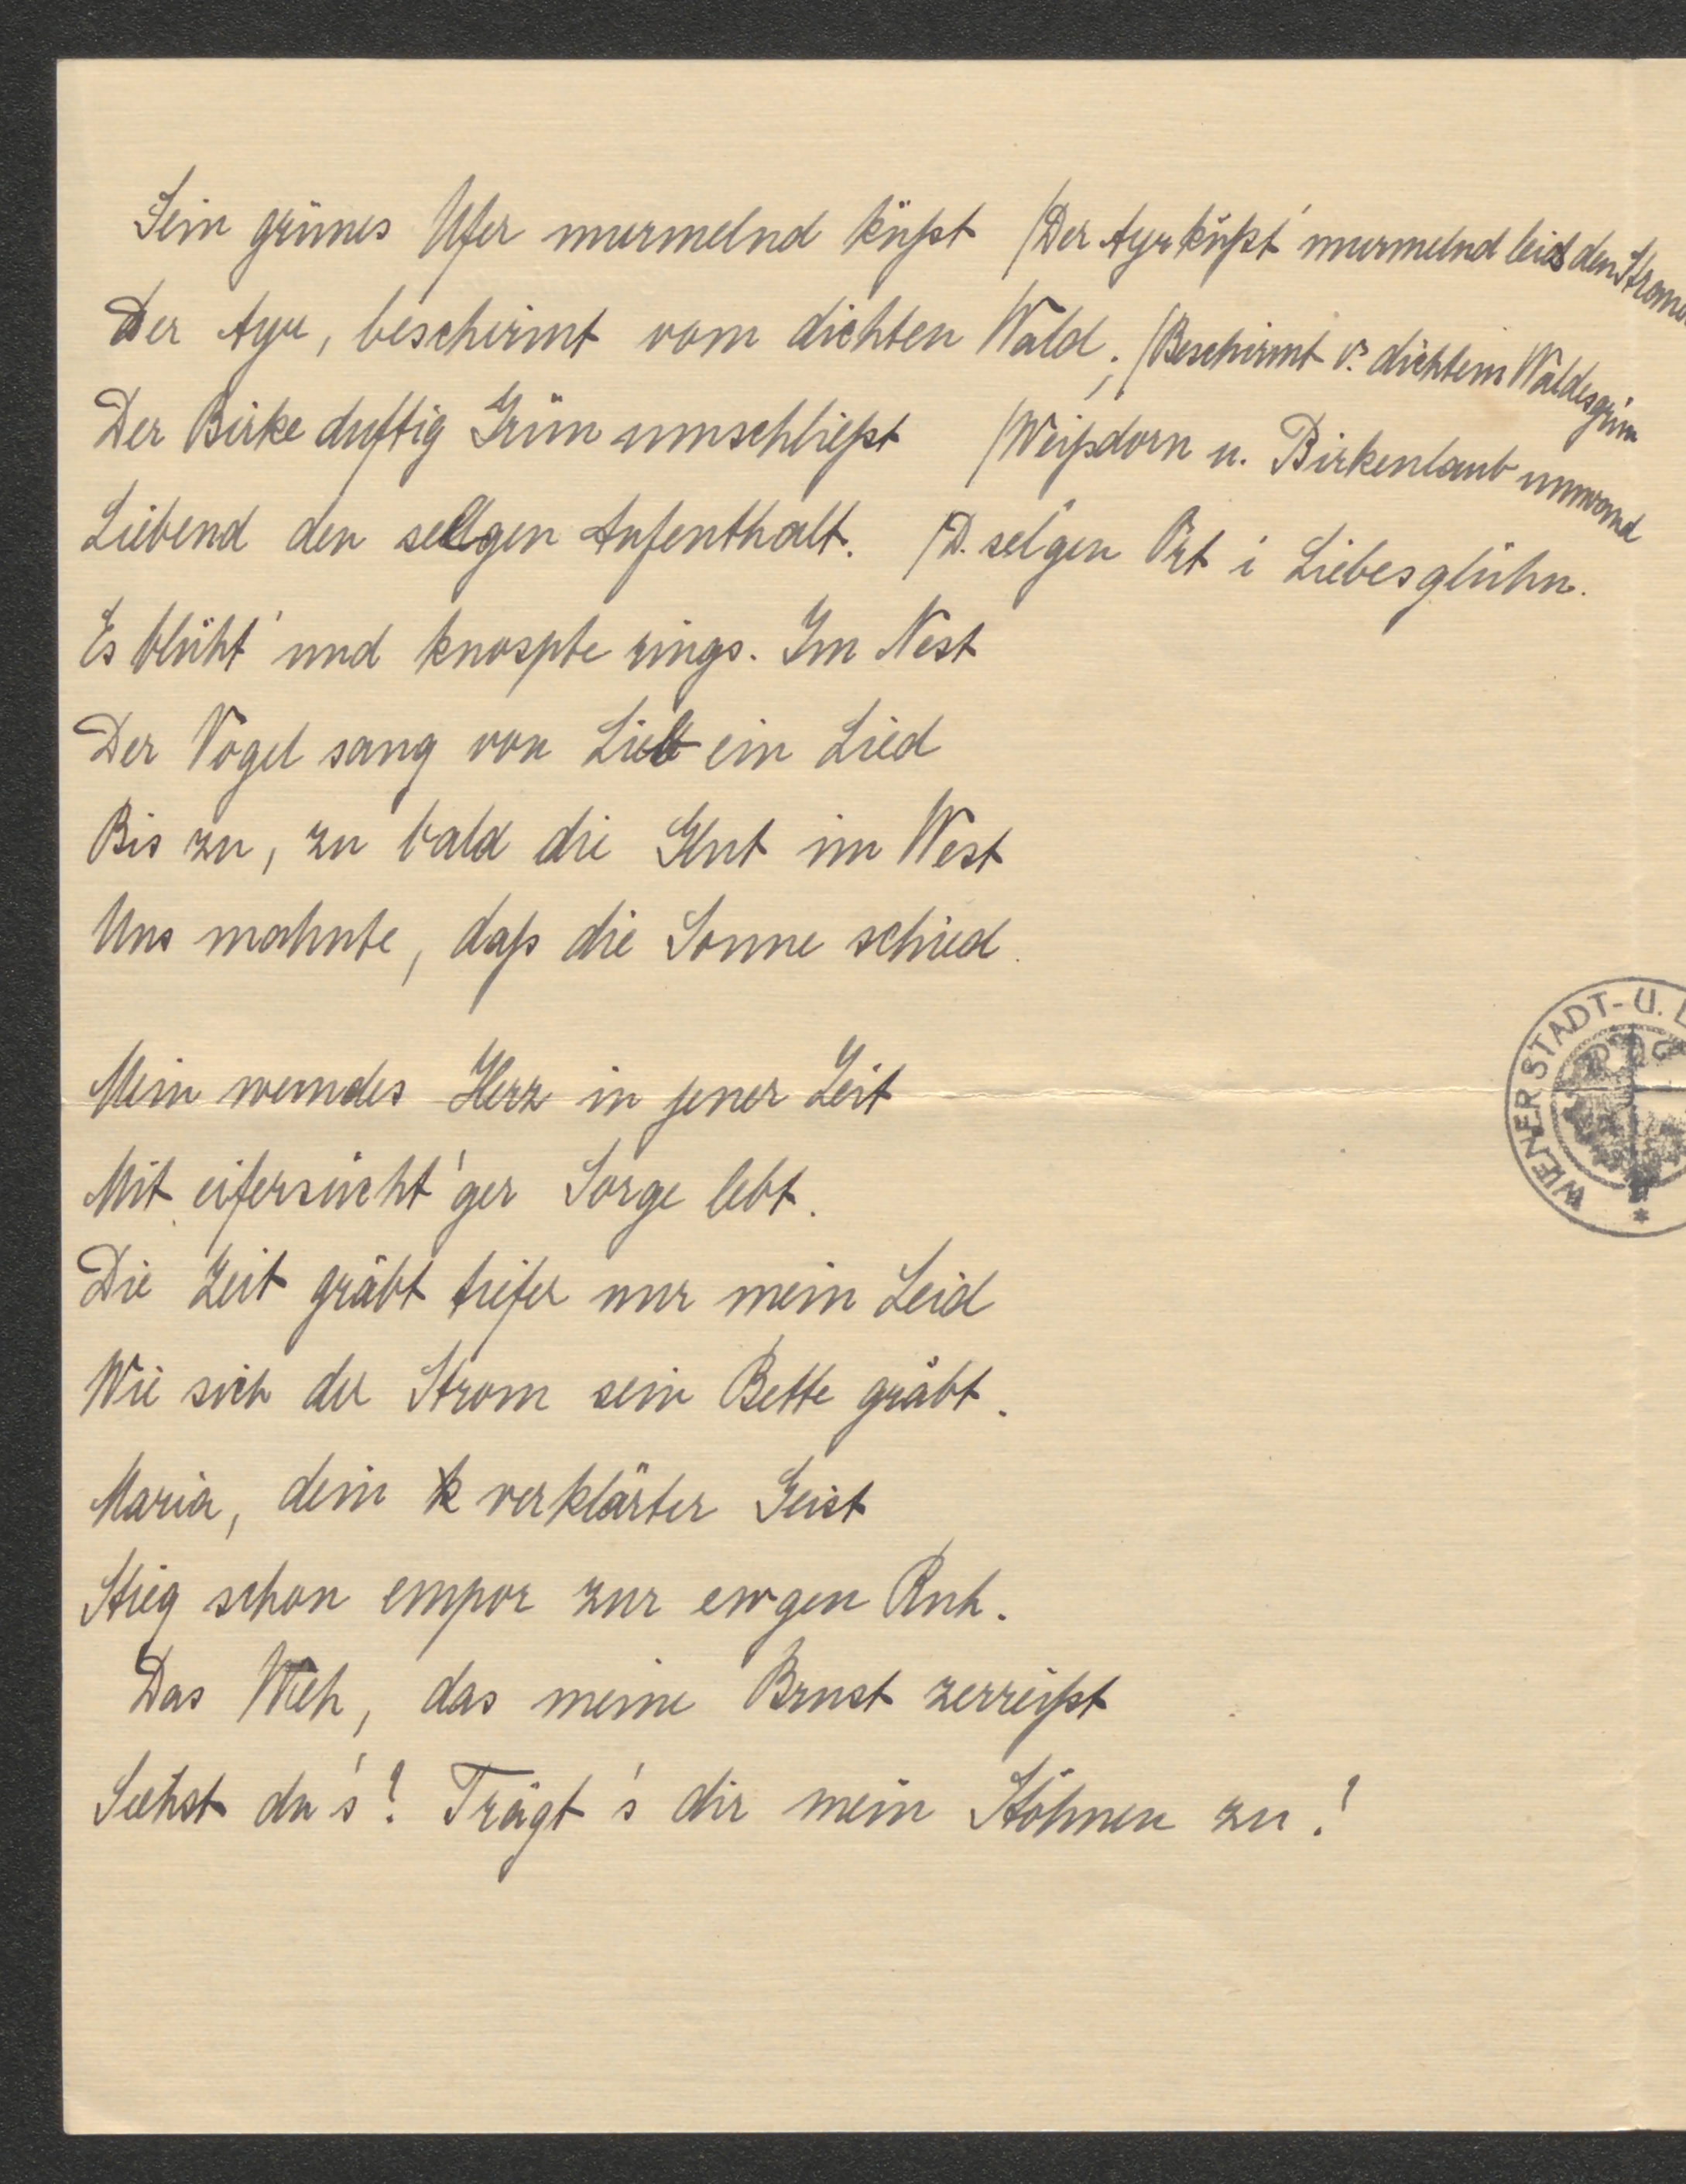 Sein grünes Ufer murmelnd küßt /Der Ayr küßt' murmelnd leis den
Der Ayr, beschirmt vom dichten Wald; /Beschirmt v. dichtem Waldesgrün
Der Birke duftig Grün umschließt /Weißdorn u. Birkenlaub umwand
Liebend den selgen Aufenthalt. /D. sel'gen Ort i Liebesglühn.
Es blüht' und knospte rings. Im Nest
Der Vogel sang von Lieb ein Lied
Bis zu, zu bald die Glut im West
Uns mahnte, daß die Sonne schied.
Mein wundes Herz in jener Zeit
Mit eifersücht'ger Sorge lebt.
Die Zeit gräbt tiefer nur mein Leid
Wie sich der Strom sein Bette gräbt.
Maria, dein verklärter Geist
Stieg schon empor zur ewgen Ruh.
Das Weh, das meine Brust zerreißt
Siehst du's? Trägt's dir mein Stöhnen zu?
WIENER STADT- U.